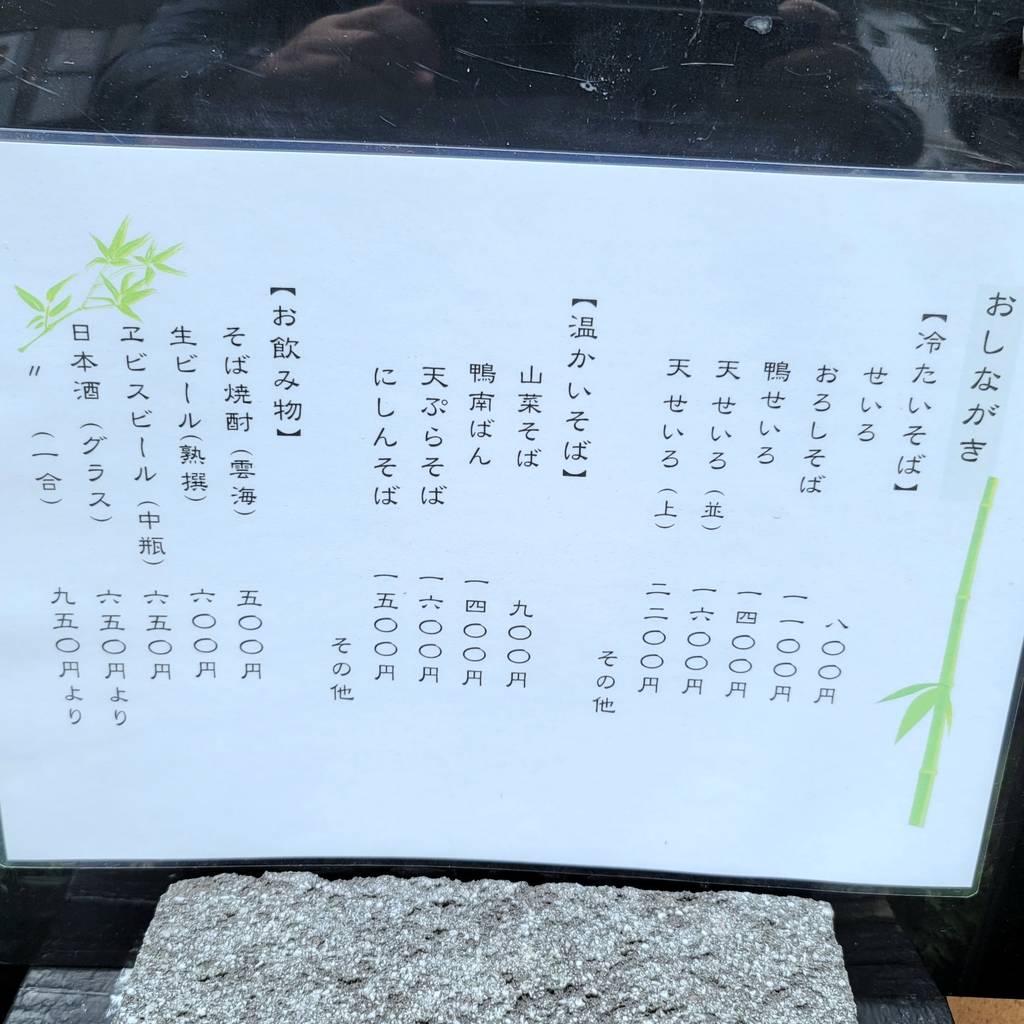 おしながき
【冷たいそば】
せいろ 八〇〇円
おろしそば 一一〇〇円
鴨せいろ 一四〇〇円
天せいろ（並） 一六〇〇円
天せいろ（上） 二二〇〇円
その他
【温かいそば】
山菜そば 九〇〇円
鴨南ばん 一四〇〇円
天ぷらそば 一六〇〇円
にしんそば 一五〇〇円
その他
【お飲み物】
そば焼酎（雲海） 五〇〇円
生ビール（熟撰） 六〇〇円
ヱビスビール（中瓶） 六五〇円
日本酒（グラス） 六五〇円より
〃（一合） 九五〇円より